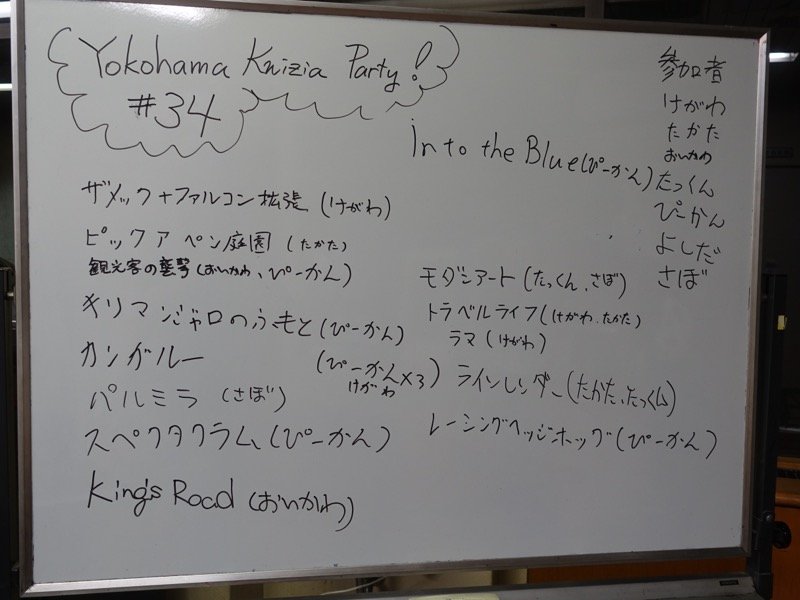 Yokohama Knizia Party!
#34
参加者
けがわ
たかた
おいかわ
たっくん
ぴーかん
よしだ
さぼ
into the Blue(ぴーかん)
ザメック+ファルコン拡張 (けがわ)
ピックアペン庭園 (たかた)
観光客の襲撃(おいかわ、ぴーかん)
キリマンジャロのふもと(ぴーかん)
カンガルー (ぴーかん×3)
けがわ
パルミラ (さぼ)
スペクタクラム(ぴーかん)
King's Road (おいかわ)
モダンアート(たっくん、さぼ)
トラベルライフ(けがわ、たかた)
ラマ(けがわ)
ラインレンダー(たかた、たっくん)
レーシングヘッジホッグ(ぴーかん)